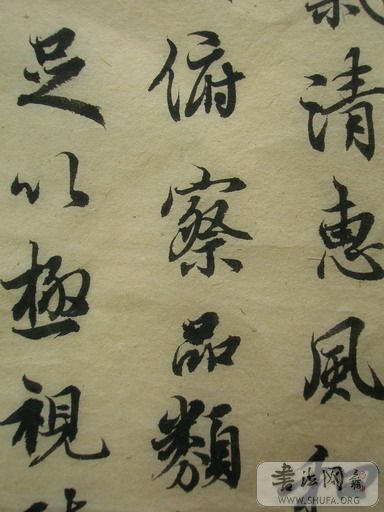 氣清惠風和
俯察品類
足以極視
書法网
WWW.SHUFA.ORG